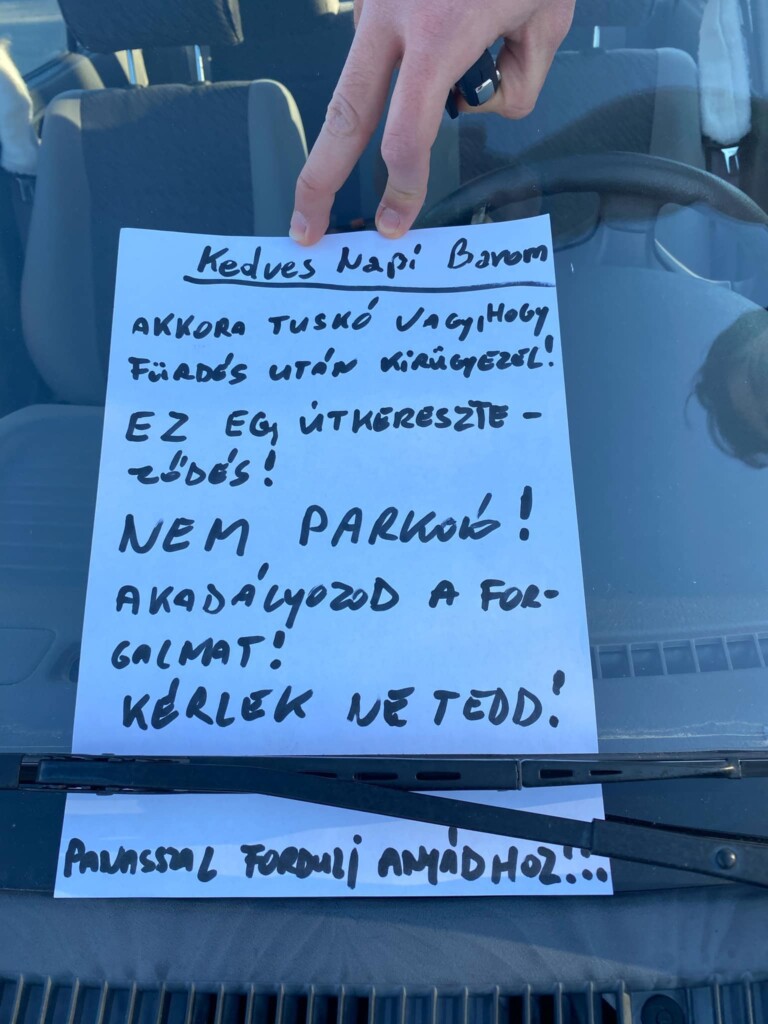 Kedves Napi Barom
AKKORA TUSKÓ VAGY, HOGY
FÜRDÉS UTÁN KIRÜGYEZEL!
EZ EGY ÚTKERESZTE-
ZŐDÉS!
NEM PARKOLÓ!
AKADÁLYOZOD A FOR-
GALMAT!
KÉRLEK NE TEDD!
PANASSZAL FORDULJ ANYÁDHOZ!...